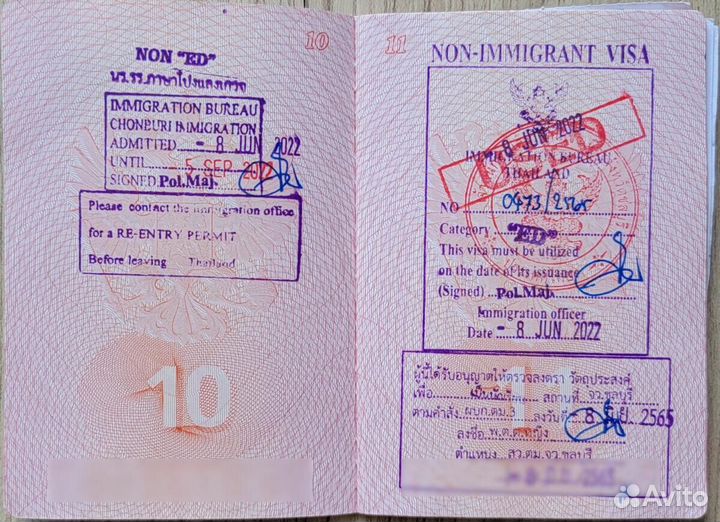 10
NON "ED"
IMMIGRATION BUREAU
CHONBURI IMMIGRATION
ADMITTED - 8 JUN 2022
UNTIL 5 SEP 2022
SIGNED Pol.Maj.
Please contact the immigration office
for a RE-ENTRY PERMIT
Before leaving Thailand
10
11
NON-IMMIGRANT VISA
8 JUN 2022
IMMIGRATION BUREAU
THAILAND
USED
NO 0473/2565
Category "ED"
This visa must be utilized
on the date of its issuance
(Signed) Pol.Maj.
Immigration officer
Date - 8 JUN 2022
ผู้นี้ได้รับอนุญาตให้ตรวจลงตรา วัตถุประสงค์
เพื่อ สถานที่ จว.ชลบุรี
ตามคำสั่ง ผบก.ตม.3 ลงวันที่ - 8 มิ.ย. 2565
ลงชื่อ พ.ต.ต.หญิง
ตำแหน่ง สว.ตม.จว.ชลบุรี
11
Avito